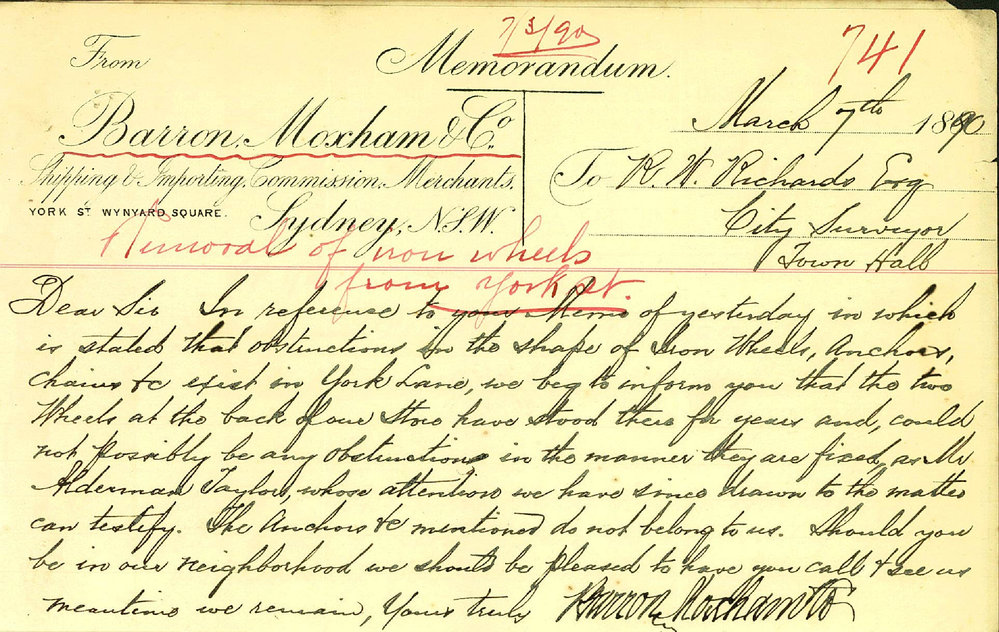 7/3/90
741
From
Memorandum.
Barron, Moxham & Co.
Shipping & Importing, Commission Merchants,
YORK ST WYNYARD SQUARE.
Sydney, N.S.W.
March 7th 1890
To R. W. Richards Esq
City Surveyor
Town Hall
Removal of iron wheels
from York St.
Dear Sir In reference to your Memo of yesterday in which
is stated that obstructions in the shape of Iron Wheels, Anchors,
Chains &c exist in York Lane, we beg to inform you that the two
Wheels at the back of our Store have stood there for years and, could
not possibly be any obstruction, in the manner they are fixed, as Mr
Alderman Taylor, whose attention we have since drawn to the matter
can testify. The Anchors &c mentioned do not belong to us. Should you
be in our neighborhood we should be pleased to have you call & see us
meantime we remain, Yours truly Barron Moxham & Co